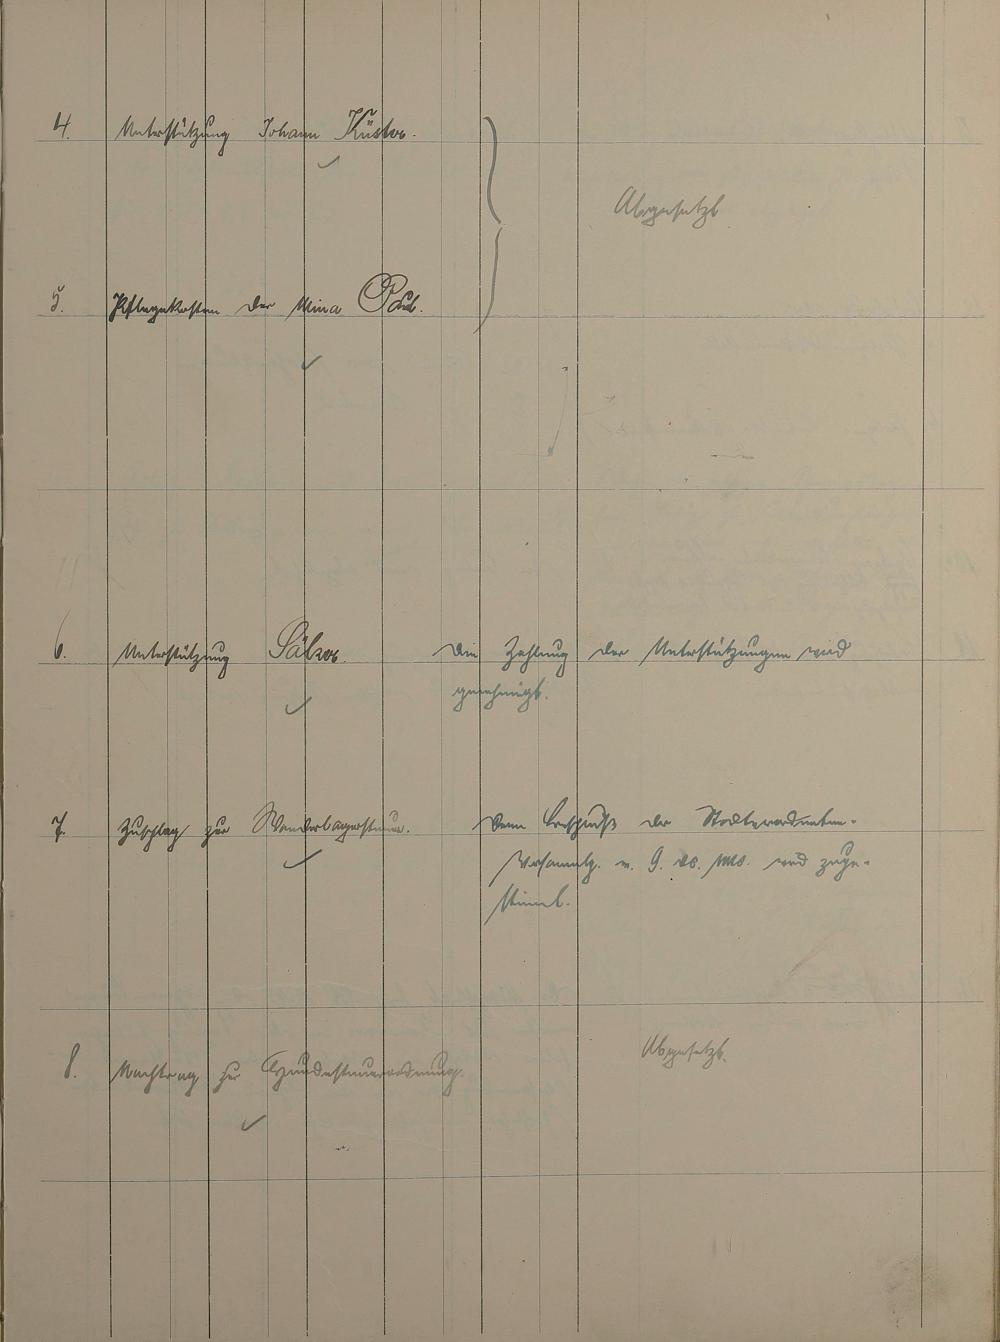 4. Unterstützung Johann Küster.
Abgesetzt
5. Pflegekosten der Mina
6. Unterstützung Sälzer. Die Zahlung der Unterstützungen wird
genehmigt.
7. Zuschlag zur Wanderlagersteuer. Dem Beschluß der Stadtverordneten-
Versammlg. v. 9. ds. Mts. wird zuge-
stimmt.
8. Nachtrag zur Hundesteuerordnung. Abgesetzt.